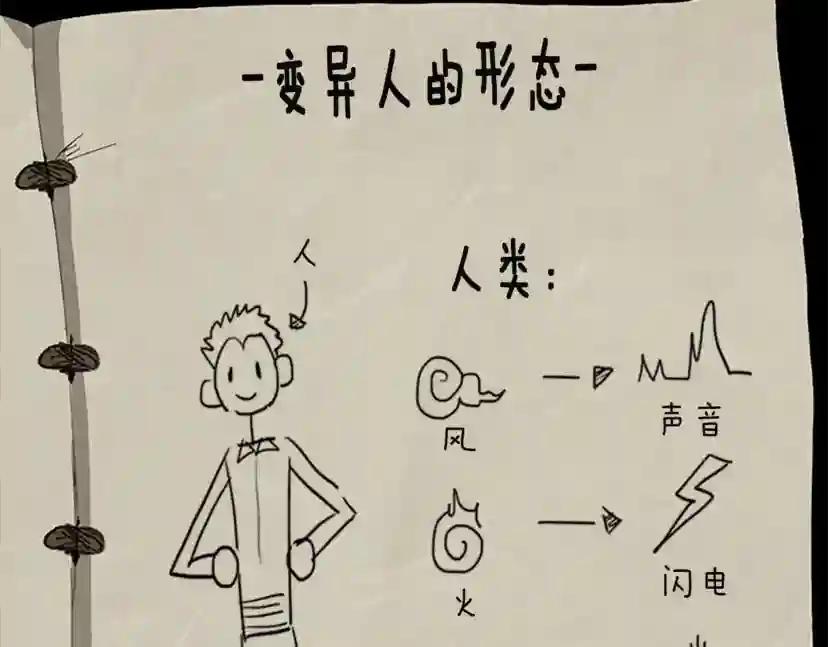 -变异人的形态-
人
人类:
风
声音
火
闪电